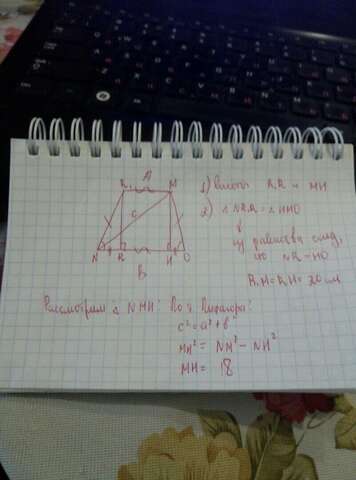 A)
K M
C
N R H O
B
1) высоты KR и MH
2) △ NKR = △ HMO
из равенства след,
что NR = HO
KM = RH = 20 см
Рассмотрим △ NMH: По т. Пифагора:
c² = a² + b²
MH² = NM² - NH²
MH = 18